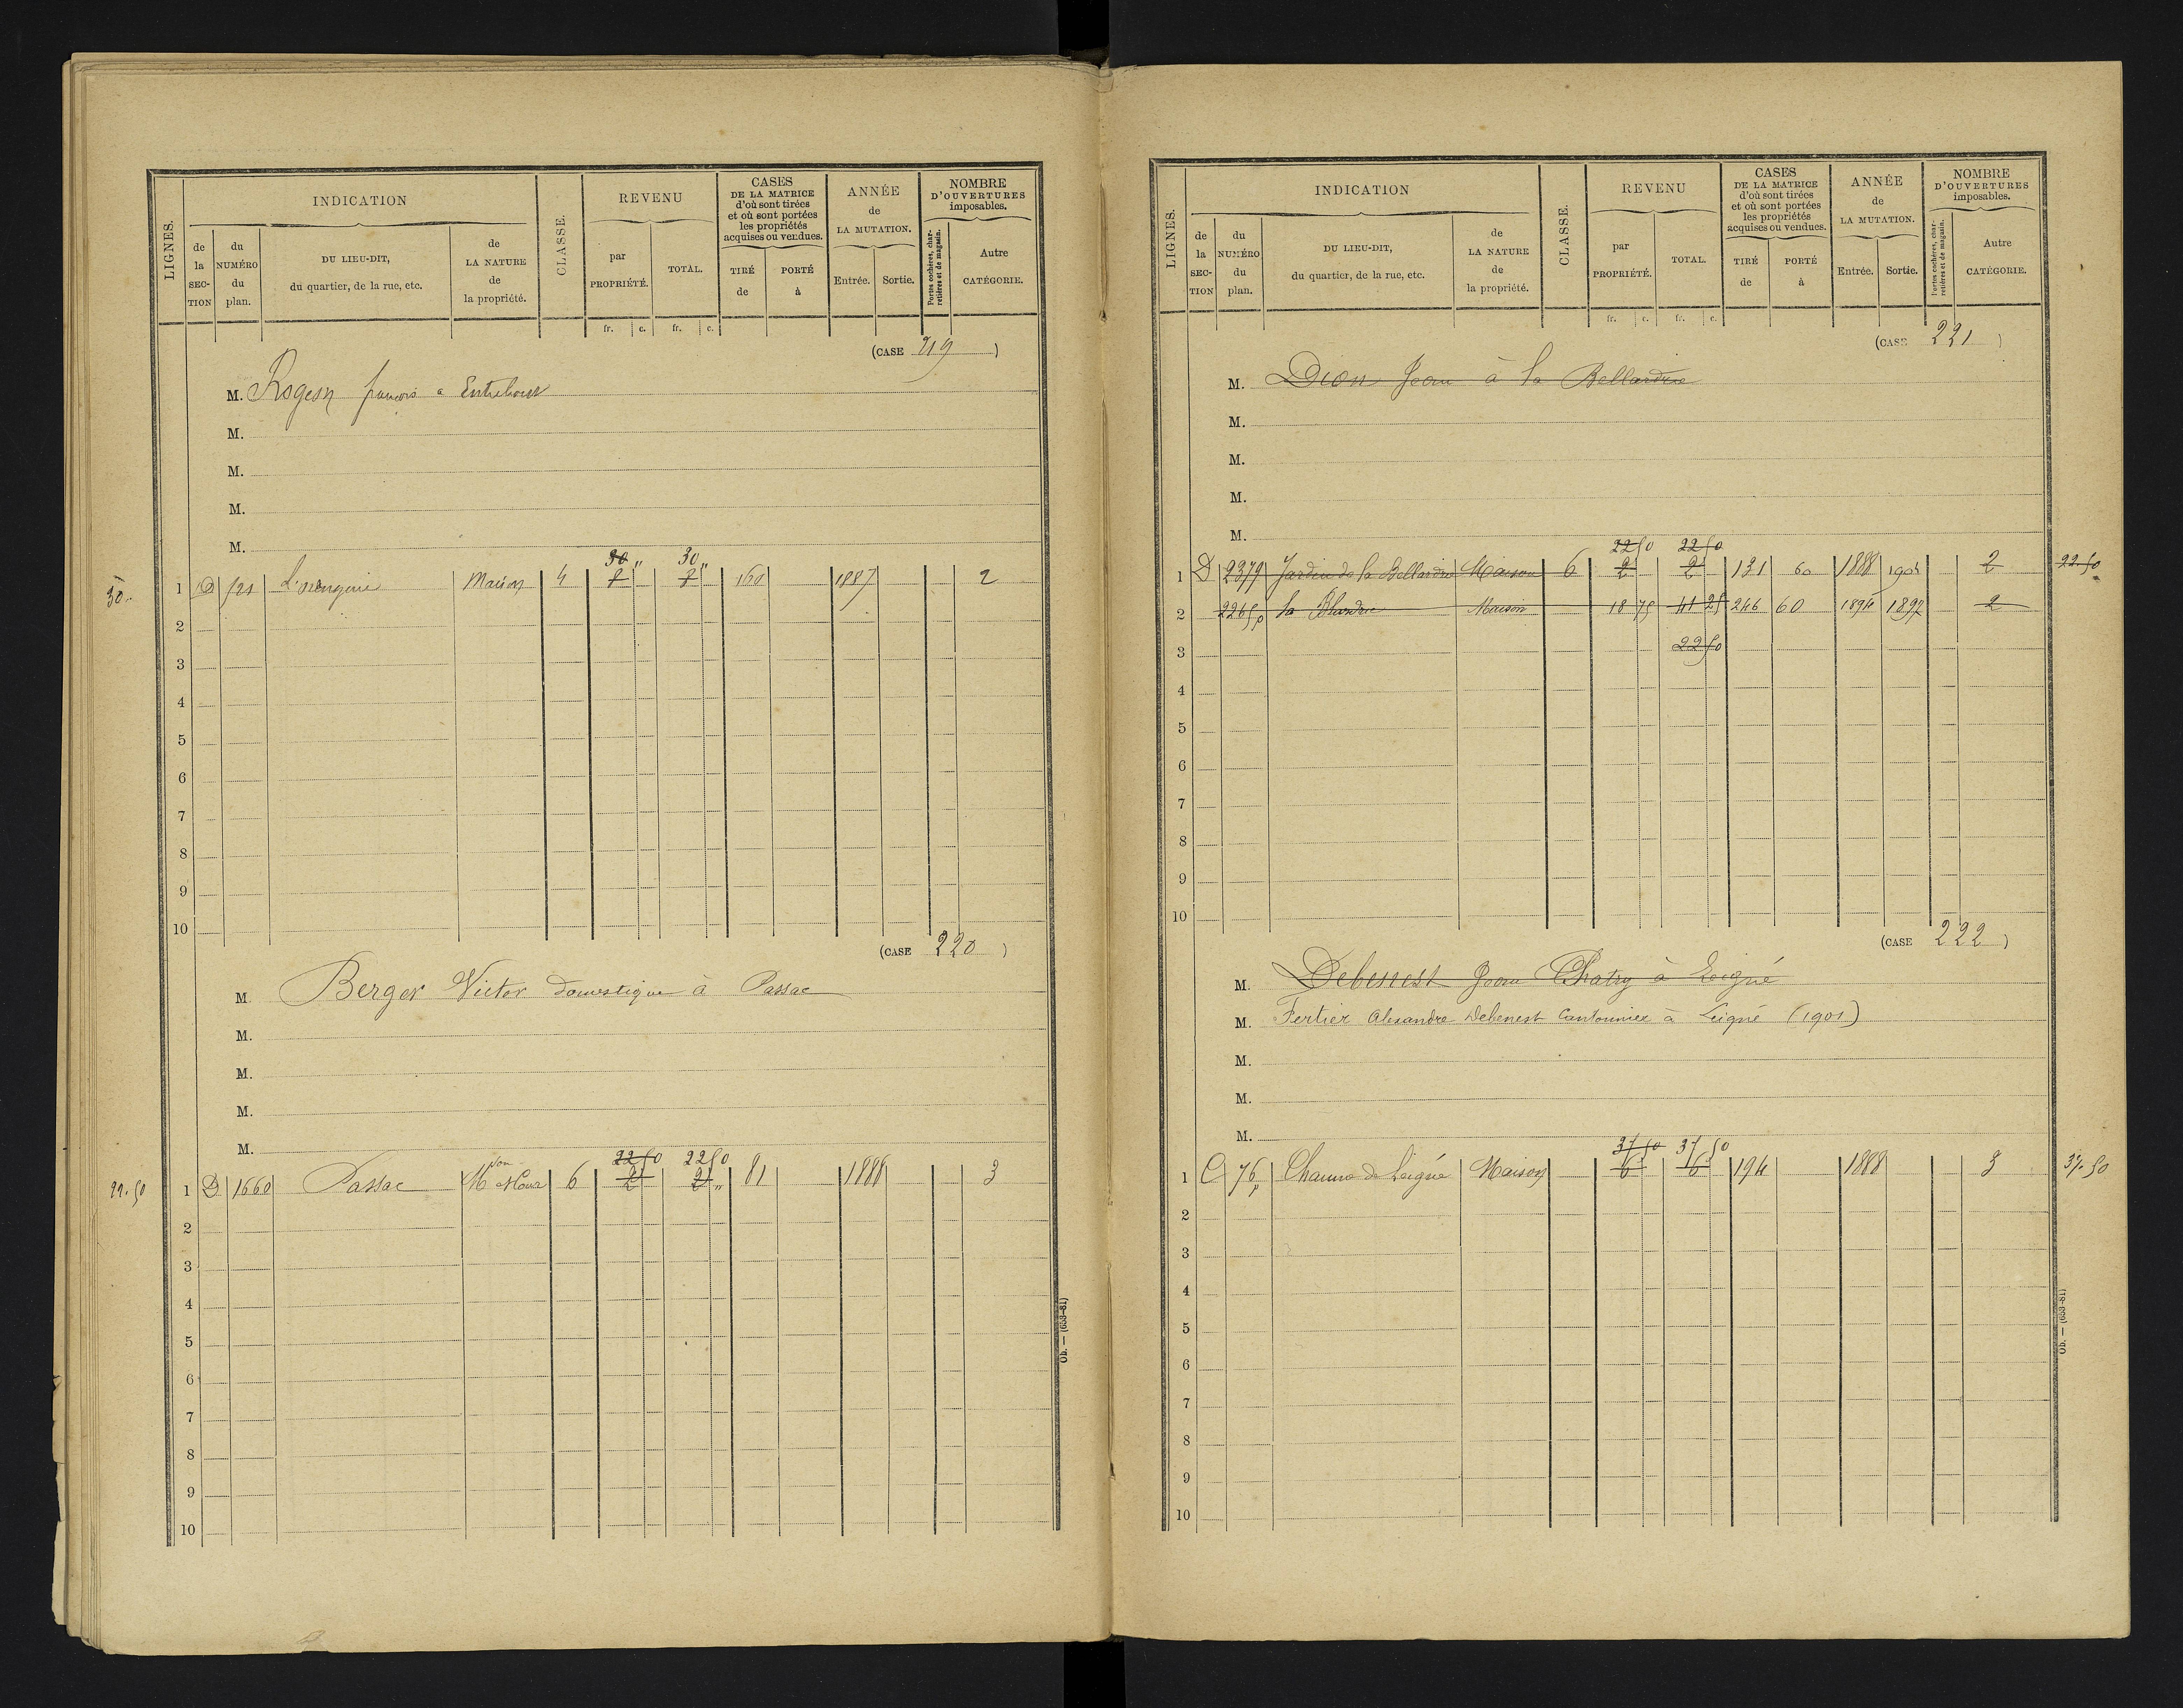 LIGNES.
INDICATION
de la SECTION
du NUMÉRO du plan.
DU LIEU-DIT, du quartier, de la rue, etc.
de LA NATURE de la propriété.
CLASSE.
REVENU
par PROPRIÉTÉ.
TOTAL.
fr. c. fr. c.
CASES DE LA MATRICE d'où sont tirées et où sont portées les propriétés acquises ou vendues.
TIRÉ de
PORTÉ à
ANNÉE de LA MUTATION.
Entrée. Sortie.
NOMBRE D'OUVERTURES imposables.
Portes cochères, charretières et de magasin.
Autre CATÉGORIE.
(CASE 219)
M. françois a
M.
M.
M.
M.
30 " 30 "
30 " 1 D Maison 4 160 1887 2
2
3
4
5
6
7
8
9
10
(CASE 220)
M. Berger Victor domestique à Passac
M.
M.
M.
M.
22 50 22 50
22.50 1 D 1660 Passac Mson 6 2 2 " 81 1888 3
2
3
4
5
6
7
8
9
10
Ob. — (653-81)
LIGNES.
INDICATION
de la SECTION
du NUMÉRO du plan.
DU LIEU-DIT, du quartier, de la rue, etc.
de LA NATURE de la propriété.
CLASSE.
REVENU
par PROPRIÉTÉ.
TOTAL.
fr. c. fr. c.
CASES DE LA MATRICE d'où sont tirées et où sont portées les propriétés acquises ou vendues.
TIRÉ de
PORTÉ à
ANNÉE de LA MUTATION.
Entrée. Sortie.
NOMBRE D'OUVERTURES imposables.
Portes cochères, charretières et de magasin.
Autre CATÉGORIE.
(CASE 221)
M. Dion Jean à la Bellardrie
M.
M.
M.
M.
22 50 22 50
1 D 2379 Jardin de la Bellardrie Maison 6 2 2 131 60 1888 1904 2 22.50
2 2265p la Maison 18 75 41 25 246 60 1894 1897 2
3 22 50
4
5
6
7
8
9
10
(CASE 222)
M. Debenest Jean Chatry à Leigné
M. Fertier Alexandre Debenest Cantonnier à Leigné (1901)
M.
M.
M.
37 50 37 50
1 C 76p Chaume de Leigné Maison 6 6 194 1888 3 37.50
2
3
4
5
6
7
8
9
10
Ob. — (653-81)